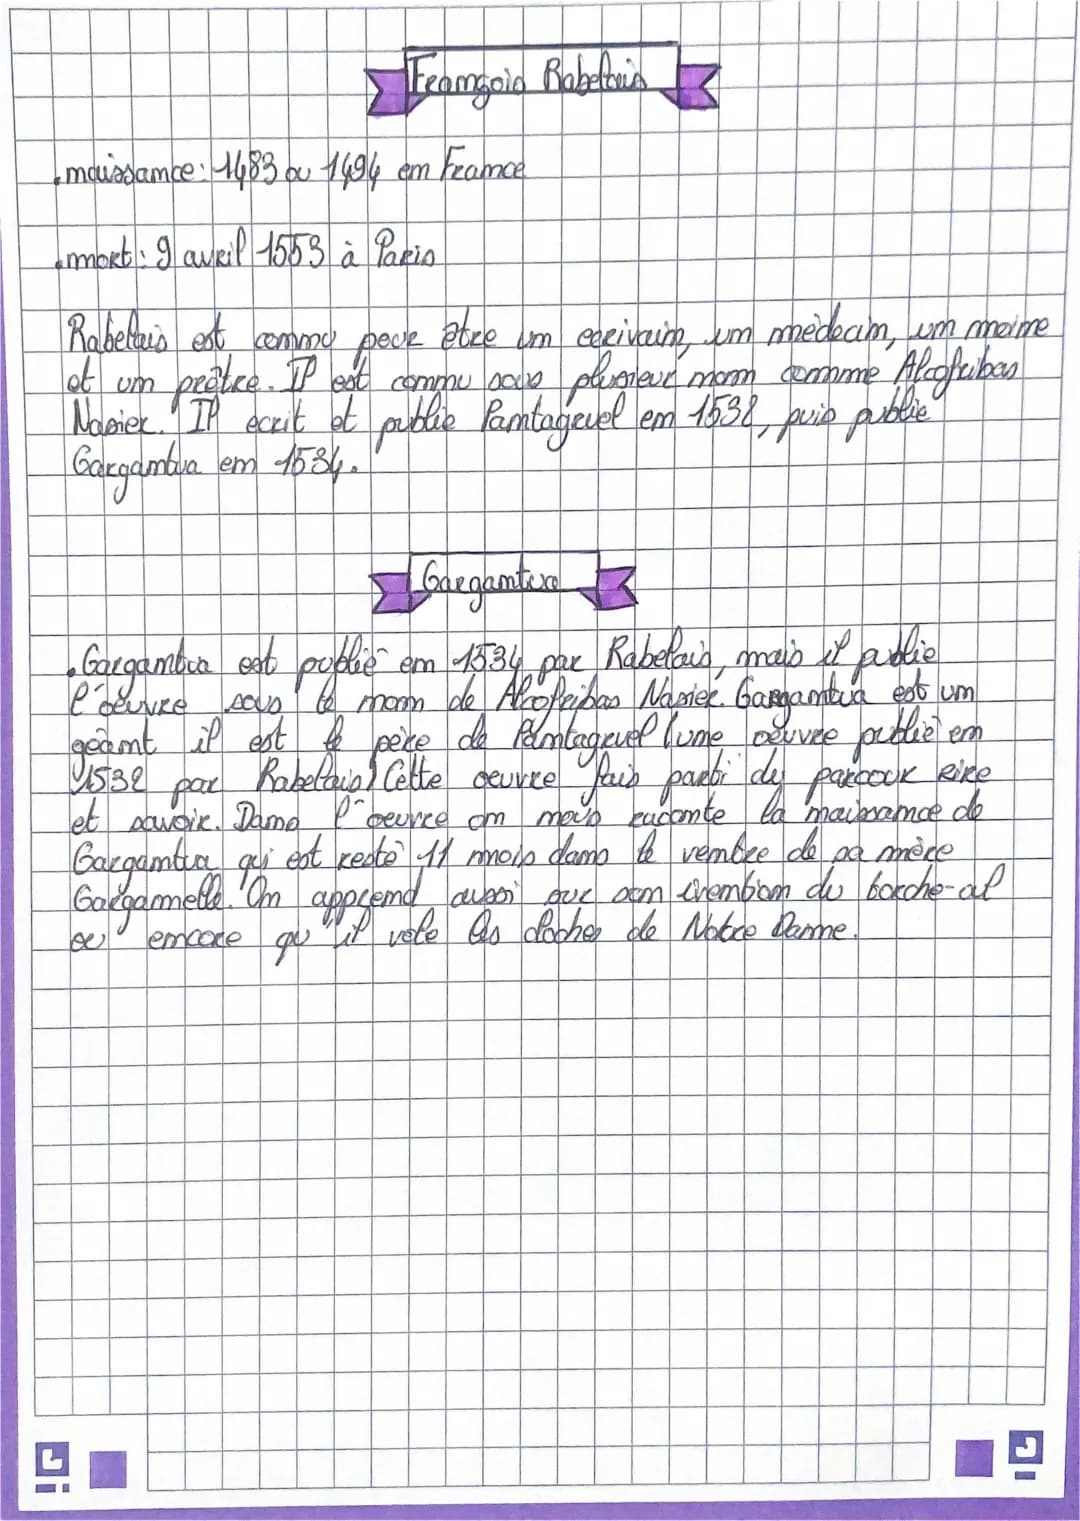 François Rabelais
. naissance : 1483 ou 1494 en France
. mort : 9 avril 1553 à Paris
Rabelais est connu pour être un ecrivain, un médecin, un moine
et un prêtre. Il est connu sous plusieur nom comme Alcofribas
Nasier. Il ecrit et publie Pantagruel en 1532, puis publie
Gargantua en 1534.
Gargantua
. Gargantua est publié en 1534 par Rabelais, mais il publie
l'oeuvre sous le nom de Alcofribas Nasier. Gargantua est un
geant il est le père de Pantagruel (une oeuvre publié en
1532 par Rabelais) Cette oeuvre fais parti du parcour rire
et savoir. Dans l'oeuvre on nous raconte la naissance de
Gargantua qui est resté 11 mois dans le ventre de sa mère
Gargamelle. On apprend aussi sur son invention du torche-
ou encore qu'il vole les cloches de Notre Dame.